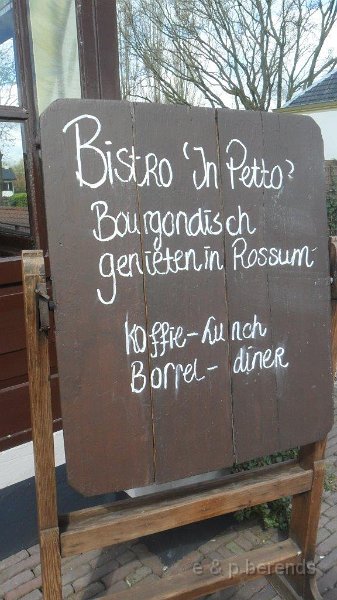 Bistro 'In Petto'
Bourgondisch
genieten in Rossum
koffie - Lunch
Borrel - diner
e & p berends